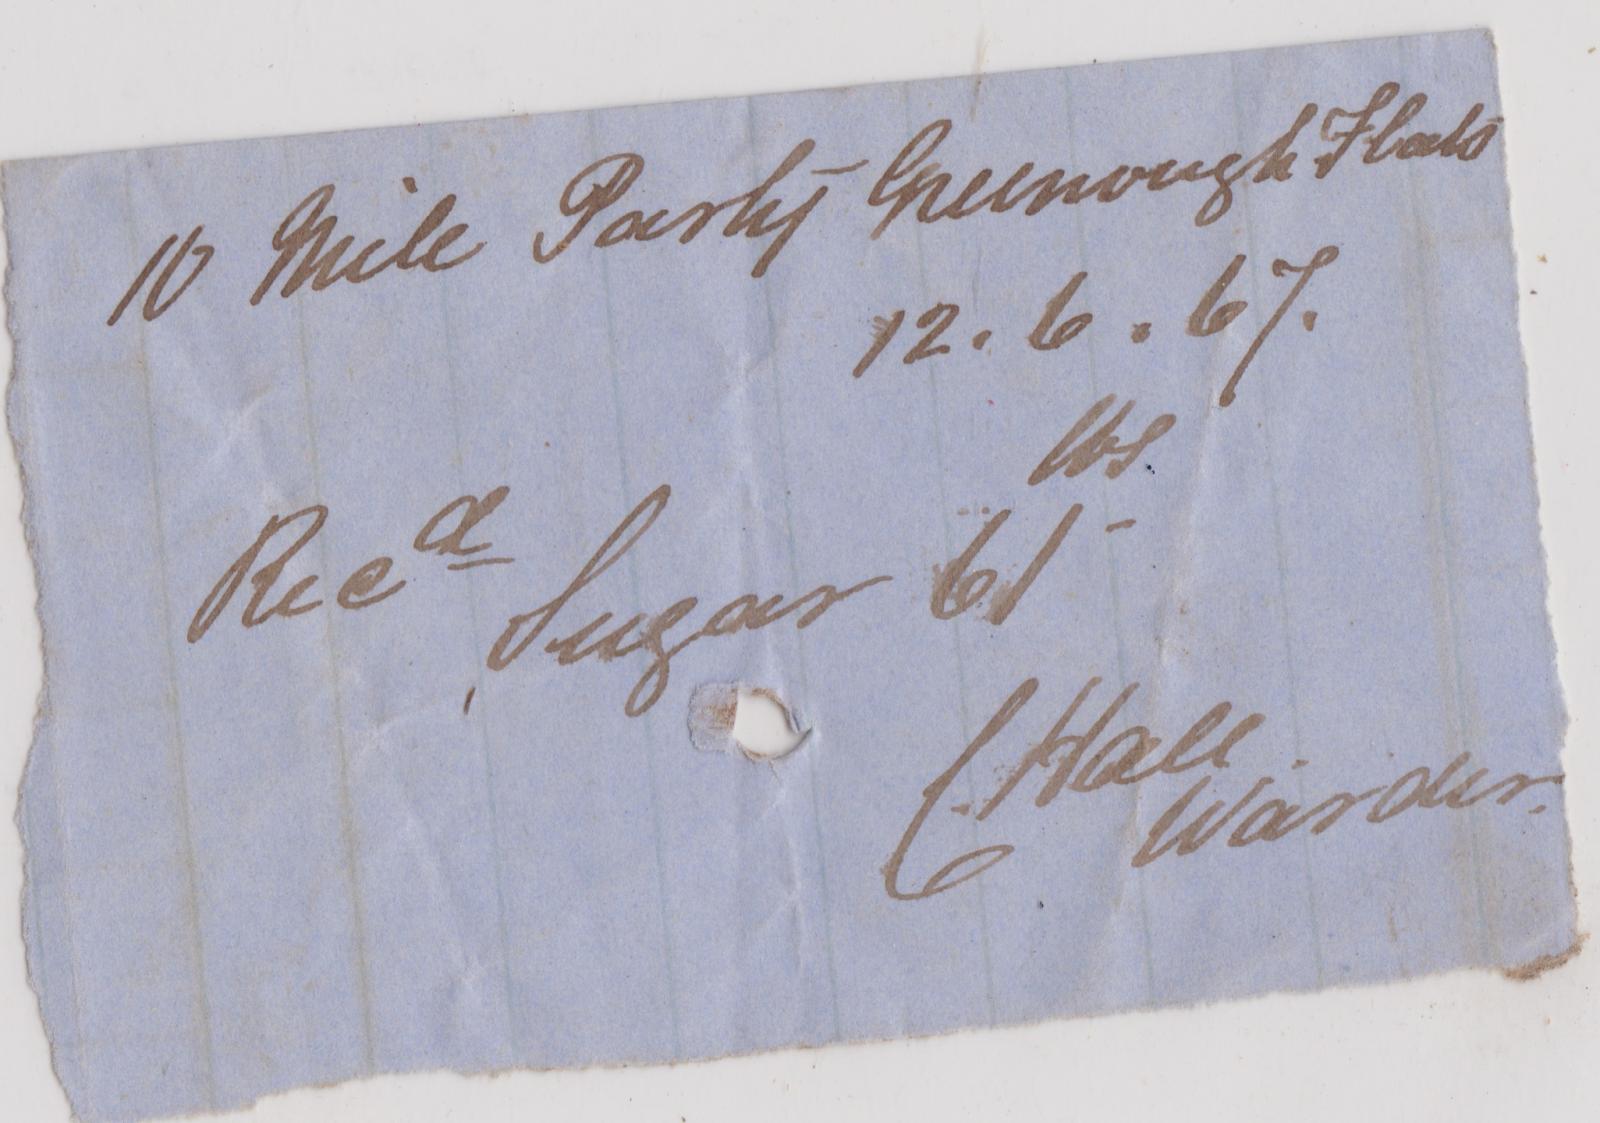 10 Mile Party Greenough Flats
12. 6. 67.
lbs
Recd Sugar 61
C. Hall
Warder.